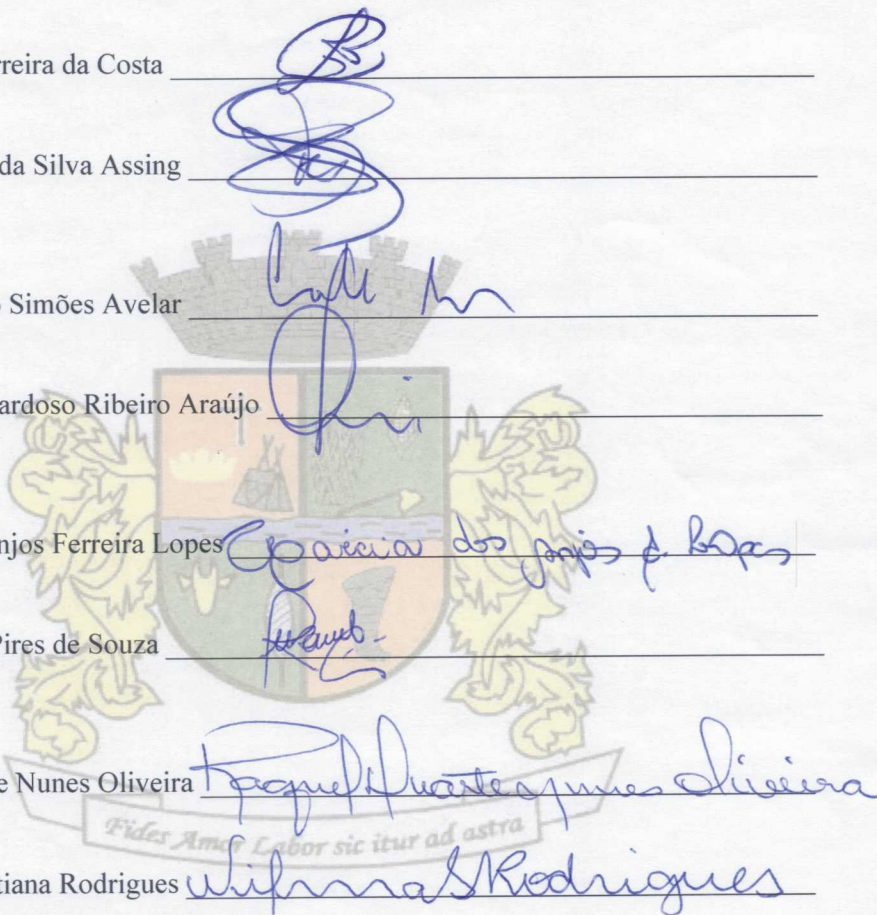 rreira da Costa
da Silva Assing
o Simões Avelar
ardoso Ribeiro Araújo
njos Ferreira Lopes dos anjos f. Lopes
Pires de Souza
e Nunes Oliveira Raquel Duarte nunes Oliveira
Fides Amor Labor sic itur ad astra
tiana Rodrigues Wilma S Rodrigues